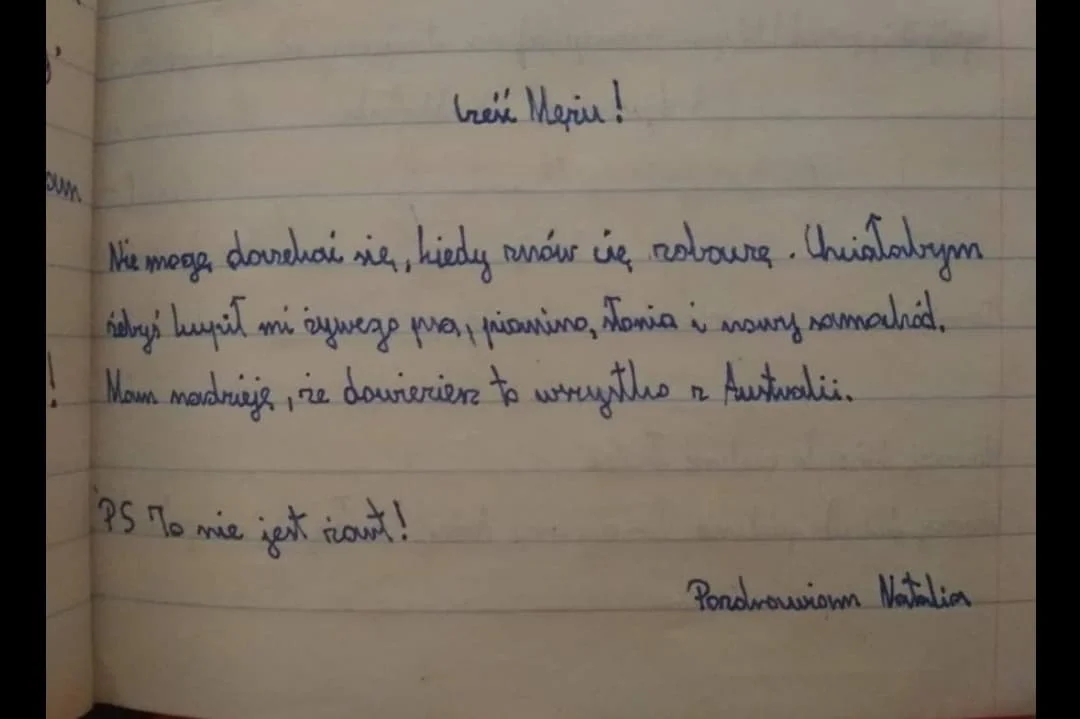 Cześć Mężu!
am
Nie mogę doczekać się, kiedy znów cię zobaczę. Chciałabym
żebyś kupił mi żywego psa, pianino, słonia i nowy samochód.
!
Mam nadzieję, że dowieziesz to wszystko z Australii.
PS To nie jest żart!
Pozdrawiam Natalia